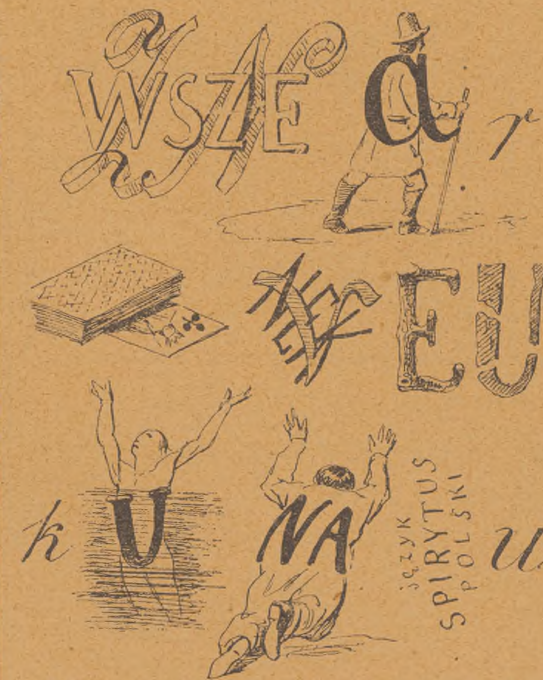 WSZE N a r
E U
k U NA język SPIRYTUS POLSKI u